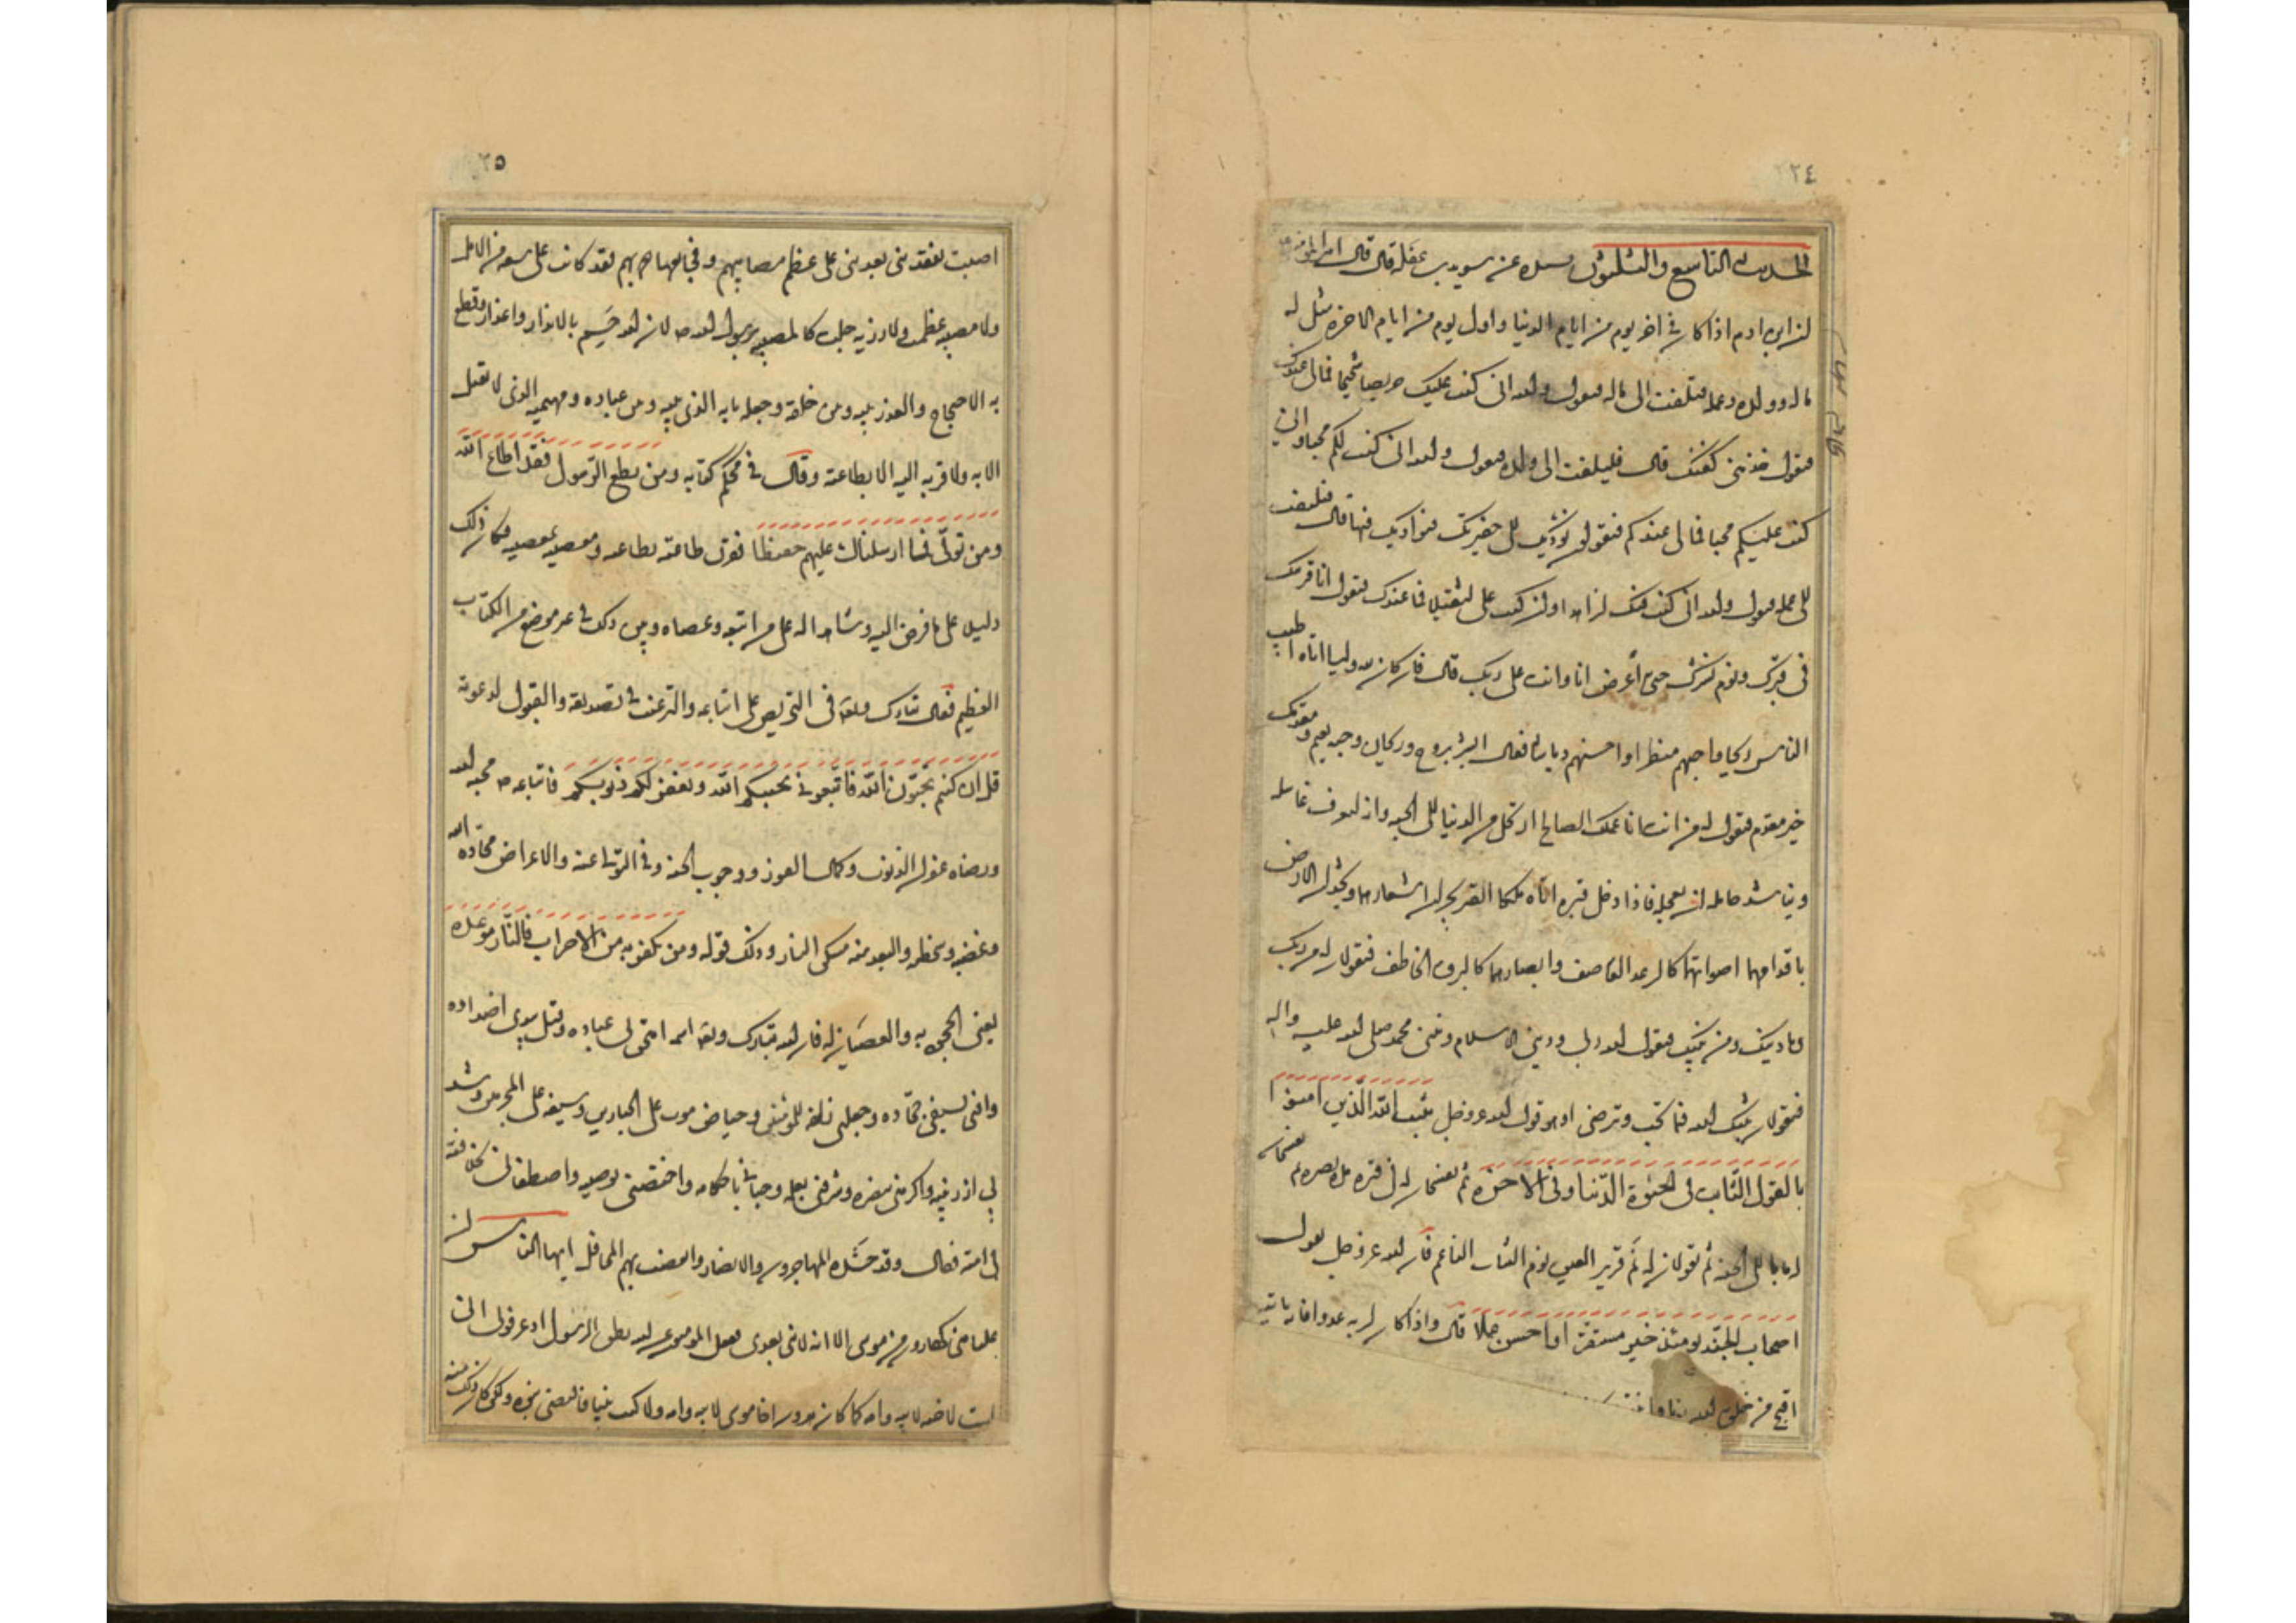 ٢٢٤
الحديث التاسع والثلثون بسنده عن سويد بن غفله قال قال امير المؤمنين
ان ابن ادم اذا كان في اخر يوم من ايام الدنيا واول يوم من ايام الاخره مثل له
ماله وولده وعمله فيلتفت الى ماله فيقول والله انى كنت عليك حريصا شحيحا فمالى عندك
فيقول خذ منى كفنك قال فيلتفت الى ولده فيقول والله انى كنت لكم محبا وانى
كنت عليكم محاميا فمالى عندكم فيقولون نؤديك الى حفرتك فنواريك فيها قال فيلتفت
الى عمله فيقول والله انى كنت فيك لزاهدا وان كنت على لثقيلا فما عندك فيقول انا قرينك
فى قبرك ويوم نشرك حتى أعرض انا وانت على ربك قال فان كان لله وليا اتاه اطيب
الناس ريحا واجهم منظرا واحسنهم رياشا فقال ابشر بروح وريحان وجنه نعيم ومقدمك
خير مقدم فيقول له من انت انا عملك الصالح ارتحل من الدنيا الى الجنه وانه ليعرف غاسله
ويناشد حامله ان يعجله فاذا دخل قبره اتاه ملكا القبر يجران اشعارهما ويخدان الارض
باقدامهما اصواتهما كالرعد القاصف وابصارهما كالبرق الخاطف فيقولان له من ربك
وما دينك ومن نبيك فيقول الله ربى ودينى الاسلام ونبيى محمد صلى الله عليه واله
فيقولان ثبتك الله فيما تحب وترضى وهو قول الله عز وجل يثبت الله الذين امنوا
بالقول الثابت فى الحيوة الدنيا وفى الاخرة ثم يفسحان له فى قبره مد بصره ثم يفتحان
له بابا الى الجنه ثم يقولان له نم قرير العين نوم الشاب الناعم فان الله عز وجل يقول
اصحاب الجنة يومئذ خير مستقرا واحسن مقيلا قال واذا كان لربه عدوا فانه ياتيه
اقبح من خلق الله
٢٥
ولا مصيبه عظمت ولا رزيه جلت كالمصيبه برسول الله ص لان الله ختم بالانذار والاعذار وقطع
به الاحتجاج والعذر بينه وبين خلقه وجعله بابه الذى بينه وبين عباده ومهيمنه الذى لا يقبل
الا به ولا قربه اليه الا بطاعته وقال في محكم كتابه ومن يطع الرسول فقد اطاع الله
ومن تولى فما ارسلناك عليهم حفيظا فقرن طاعته بطاعته ومعصيته بمعصيته فكان ذلك
دليلا على ما فوض اليه وشاهدا له على من اتبعه وعصاه وبين ذلك في غير موضع من الكتاب
العظيم فقال تبارك وتعالى فى التحريص على اتباعه والترغيب فى تصديقه والقبول لدعوته
قل ان كنتم تحبون الله فاتبعونى يحببكم الله ويغفر لكم ذنوبكم فاتباعه ص محبه الله
ورضاه غفران الذنوب وكمال الفوز ووجوب الجنة وفى التولى عنه والاعراض محاده الله
وغضبه وسخطه والبعد منه مسكن النار وذلك قوله ومن يكفر به من الاحزاب فالنار موعده
يعنى الجحود به والعصيان له فان الله تبارك اسمه امتحن بى عباده وقتل بيدى اضداده
وافنى بسيفى جحاده وجعلنى زلفه للمؤمنين وحياض موت على الجبارين وسيفه على المجرمين وشد
بى ازر نبيه واكرمنى بنصره وشرفنى بعلمه وحبانى باحكامه واختصنى بوصيته واصطفانى بخلافته
فى امته فقال وقد حشده المهاجرون والانصار وانغصت بهم المحافل ايها الناس ان
عليا منى كهارون من موسى الا انه لا نبى بعدى فعقل المؤمنون عن الله نطق الرسول اذ عرفونى انى
لست باخيه لابيه وامه كما كان هرون اخا موسى لابيه وامه ولا كنت نبيا فاقتضى نبوه ولكن كان ذلك منه